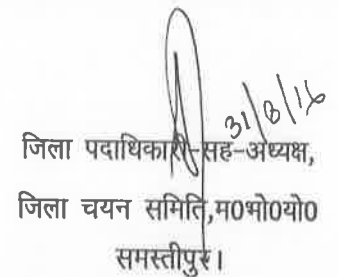 31/8/16
जिला पदाधिकारी-सह-अध्यक्ष,
जिला चयन समिति,म0भो0यो0
समस्तीपुर।